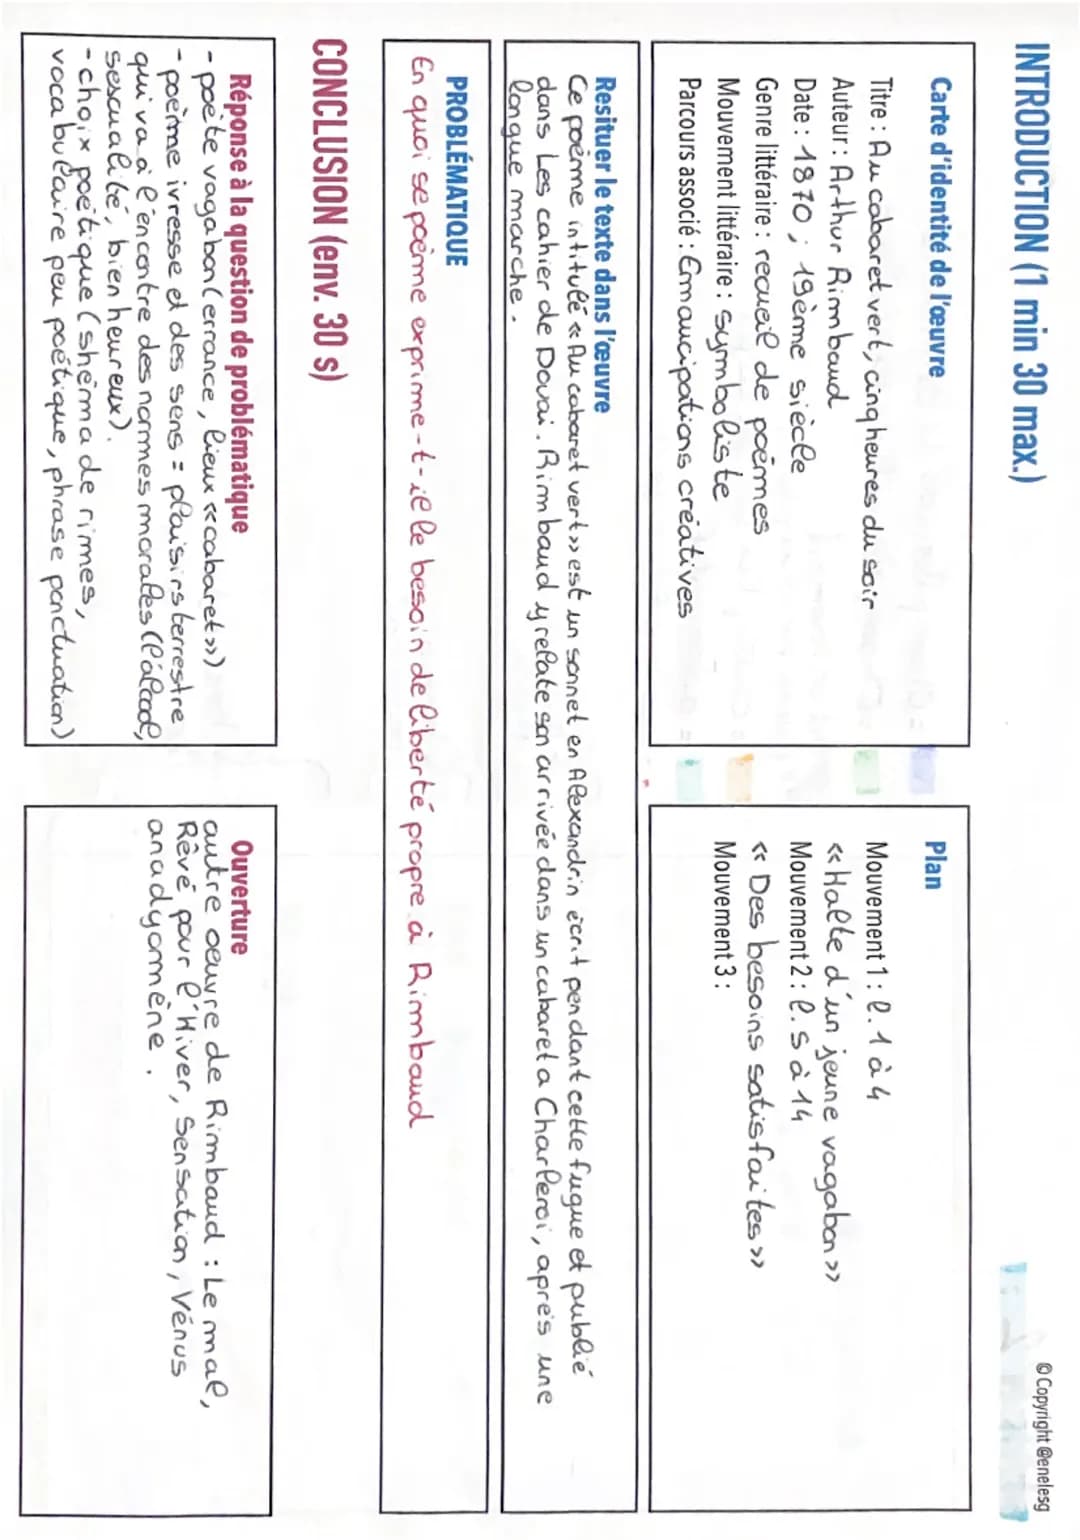 © Copyright @enelesg
INTRODUCTION (1 min 30 max.)
Carte d'identité de l'œuvre
Titre : Au cabaret vert, cinq heures du soir
Auteur : Arthur Rimbaud
Date : 1870 ; 19ème siècle
Genre littéraire : recueil de poèmes
Mouvement littéraire : symboliste
Parcours associé : Emaucipations créatives
Plan
Mouvement 1 : l. 1 à 4
« Halte d'un jeune vagabon »
Mouvement 2 : l. 5 à 14
« Des besoins satisfaites »
Mouvement 3 :
Resituer le texte dans l'œuvre
Ce poème intitulé « Au cabaret vert » est un sonnet en Alexandrin écrit pendant cette fugue et publié
dans Les cahier de Douai. Rimbaud y relate son arrivée dans un cabaret a Charleroi, après une
longue marche.
PROBLÉMATIQUE
En quoi se poème exprime-t-il le besoin de liberté propre à Rimbaud
CONCLUSION (env. 30 s)
Réponse à la question de problématique
- poète vagabon (errance, lieux « cabaret »)
- poème ivresse et des sens = plaisirs terrestre
qui va à l'encontre des normes morales (l'alcool,
sescualité, bien heureux).
- choix poétique (shéma de rimes,
vocabulaire peu poétique, phrase ponctuation)
Ouverture
autre oeuvre de Rimbaud : Le mal,
Rêvé pour l'Hiver, Sensation, Vénus
anadyomène.